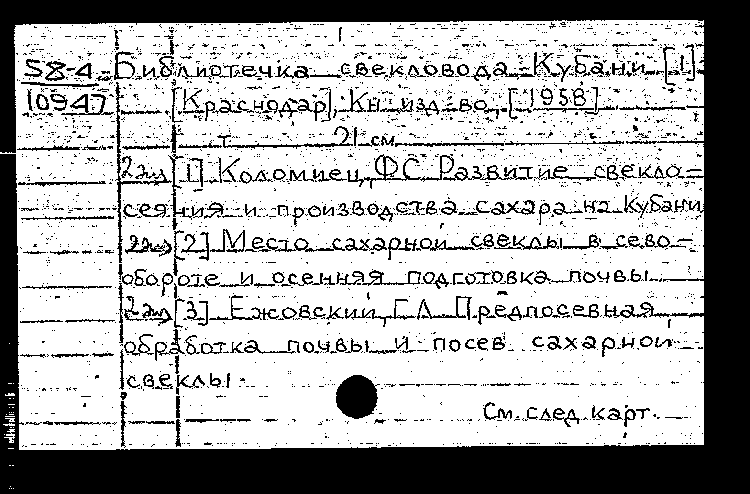 58-4
10947
Библиотечка свекловода Кубани [1]
[Краснодар], Кн. изд-во, [1958]
т. 21 см.
2 экз [1] Коломиец, ФС Развитие свекло-
сеяния и производства сахара на Кубани
2 экз [2] Место сахарной свеклы в сево-
обороте и осенняя подготовка почвы
2 экз [3] Ежовский, ГА Предпосевная
обработка почвы и посев сахарной
свеклы.
См. след. карт.